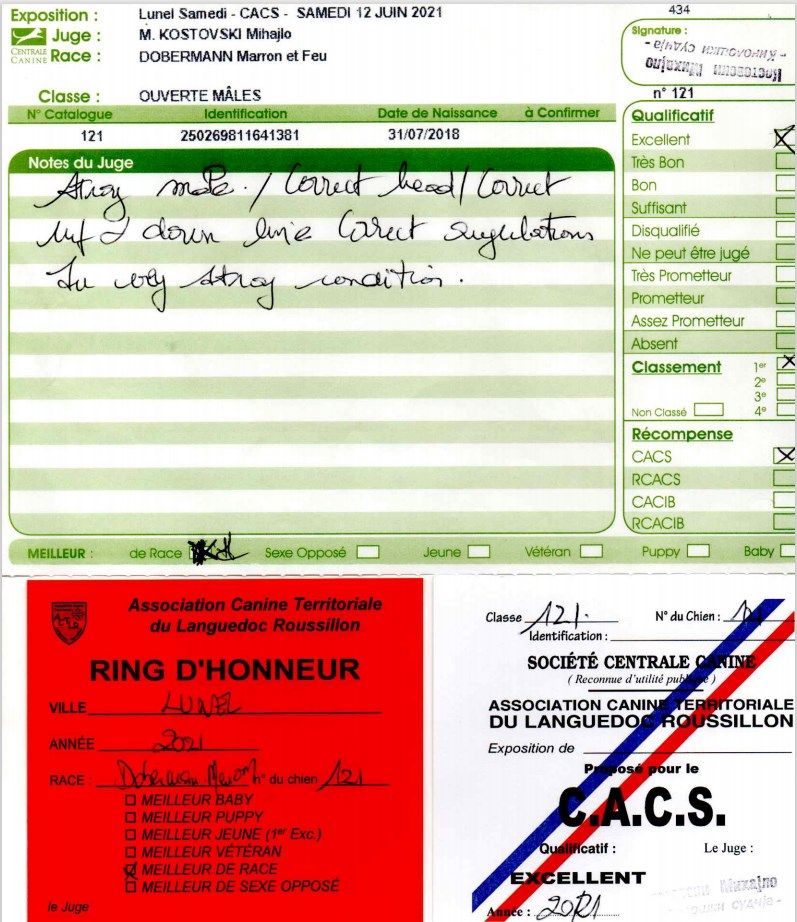 Exposition : Lunel Samedi - CACS - SAMEDI 12 JUIN 2021
434
Juge : M. KOSTOVSKI Mihajlo
Signature :
CENTRALE CANINE
Race : DOBERMANN Marron et Feu
Classe : OUVERTE MÂLES
n° 121
N° Catalogue Identification Date de Naissance à Confirmer
121 250269811641381 31/07/2018
Notes du Juge
Strog male / Correct head / Correct
up & down line Corect angulations
In very strog condition.
Qualificatif
Excellent
Très Bon
Bon
Suffisant
Disqualifié
Ne peut être jugé
Très Prometteur
Prometteur
Assez Prometteur
Absent
Classement 1er
2e
3e
Non Classé 4e
Récompense
CACS
RCACS
CACIB
RCACIB
MEILLEUR : de Race Sexe Opposé Jeune Vétéran Puppy Baby
Association Canine Territoriale
du Languedoc Roussillon
RING D'HONNEUR
VILLE LUNEL
ANNÉE 2021
RACE : Doberman n° du chien 121
MEILLEUR BABY
MEILLEUR PUPPY
MEILLEUR JEUNE (1er Exc.)
MEILLEUR VÉTÉRAN
MEILLEUR DE RACE
MEILLEUR DE SEXE OPPOSÉ
le Juge
Classe 121. N° du Chien : 121
Identification :
SOCIÉTÉ CENTRALE CANINE
( Reconnue d'utilité publique )
ASSOCIATION CANINE TERRITORIALE
DU LANGUEDOC ROUSSILLON
Exposition de
Proposé pour le
C.A.C.S.
Qualificatif : Le Juge :
EXCELLENT
Année : 2021